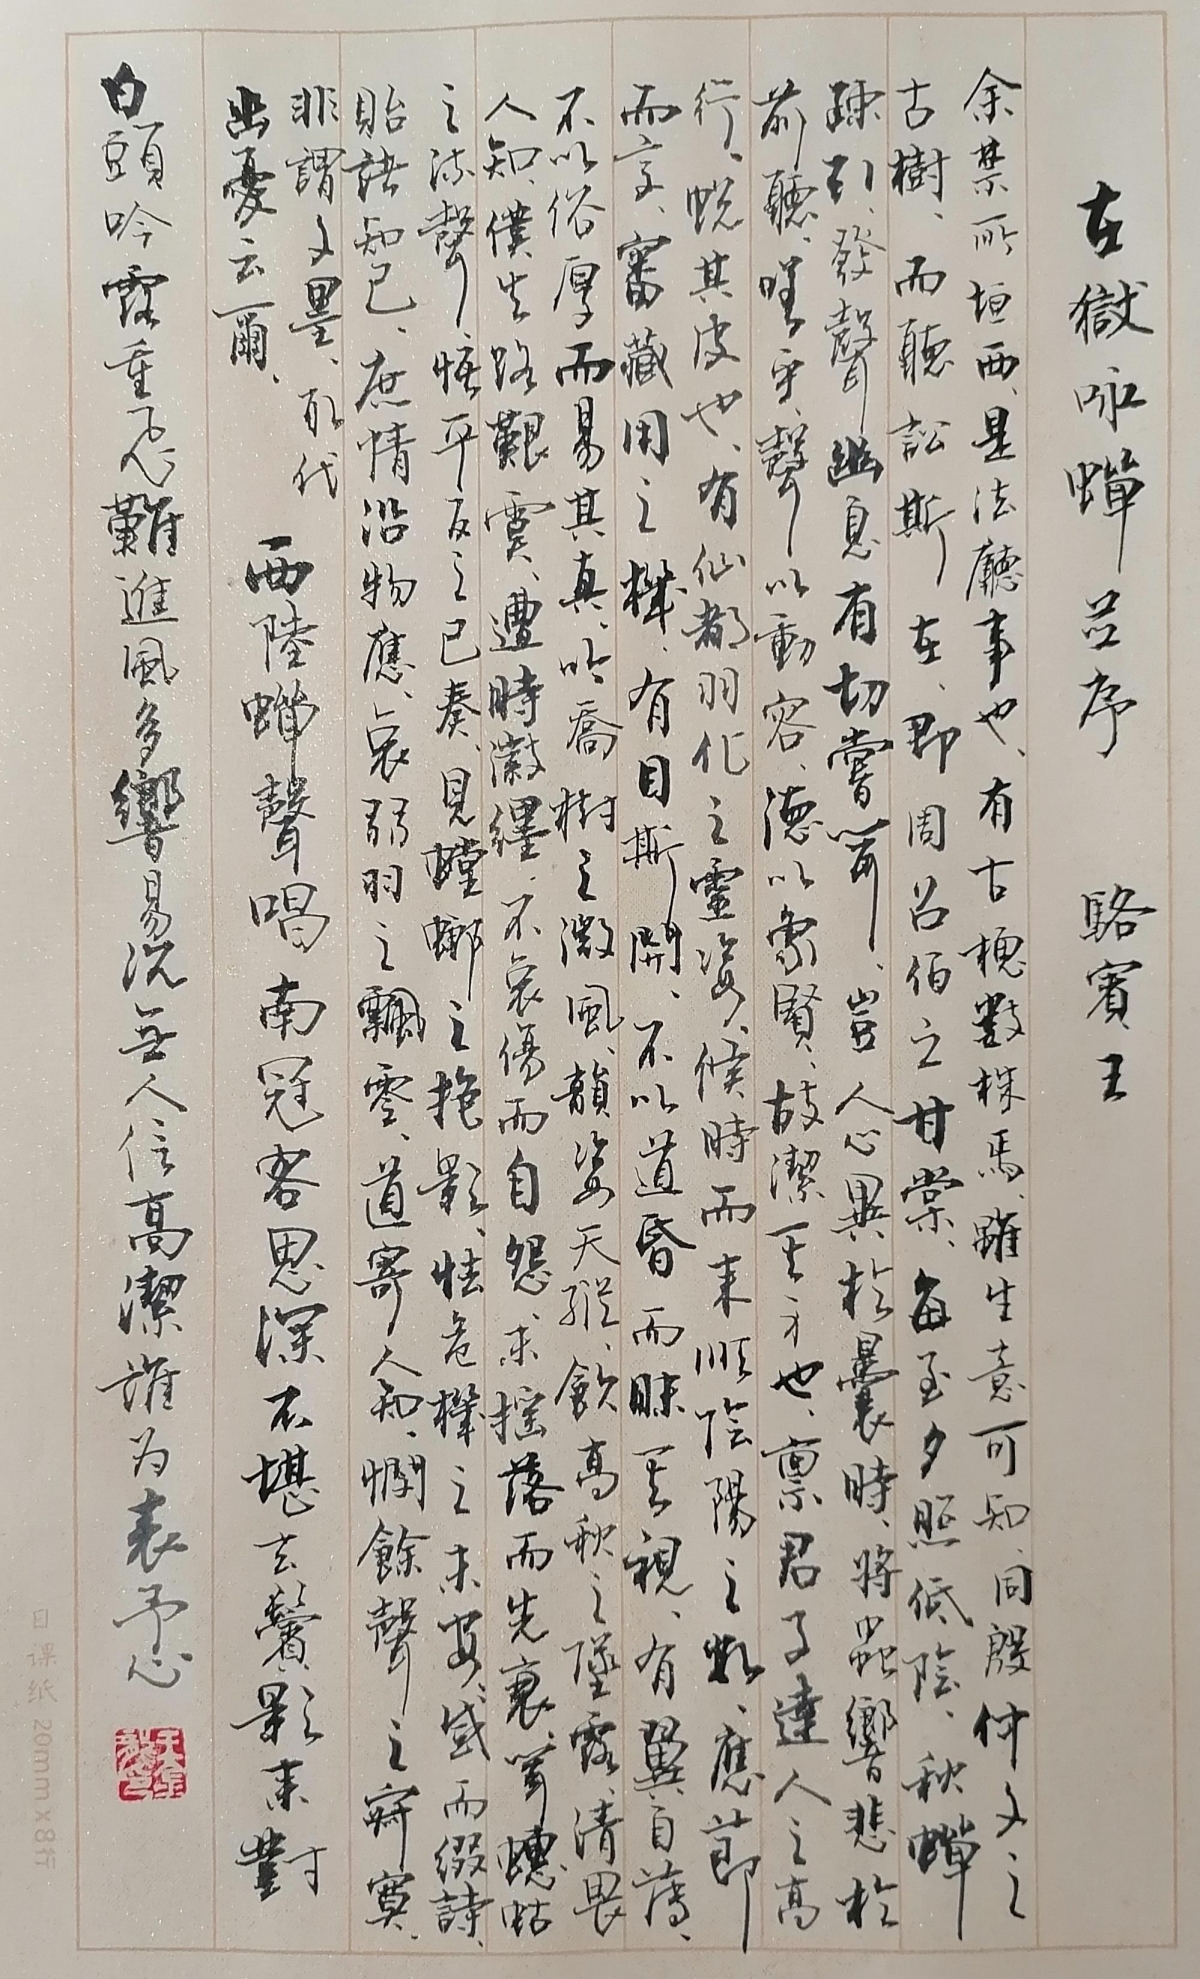 在獄咏蟬並序 駱賓王
余禁所垣西、是法廳事也、有古槐數株焉、雖生意可知、同殷仲文之
古樹、而聽訟斯在、即周召伯之甘棠、每至夕照低陰、秋蟬
疎引、發聲幽息、有切嘗聞、豈人心異於曩時、將蟲響悲於
前聽、嗟乎、聲以動容、德以象賢、故潔其身也、禀君子達人之高
行、蛻其皮也、有仙都羽化之靈姿、候時而来順陰陽之數、應節
而变、審藏用之機、有目斯開、不以道昏而昧其視、有翼自薄、
不以俗厚而易其真、吟喬樹之微風、韻姿天縱、飲高秋之墜露、清畏
人知、僕失路艱虞、遭時徽纆、不哀傷而自怨、未摇落而先衰、聞蟪蛄
之流聲、悟平反之已奏、見螳螂之抱影、怯危機之未安、感而綴詩、
貽諸知己、庶情沿物應、哀弱羽之飄零、道寄人知、憫餘聲之寂寞、
非謂文墨、取代
幽憂云爾、
西陸蟬聲唱南冠客思深不堪玄鬢影来對
白頭吟露重飛難進風多響易沉無人信高潔誰为表予心
日课纸 20mm×8行